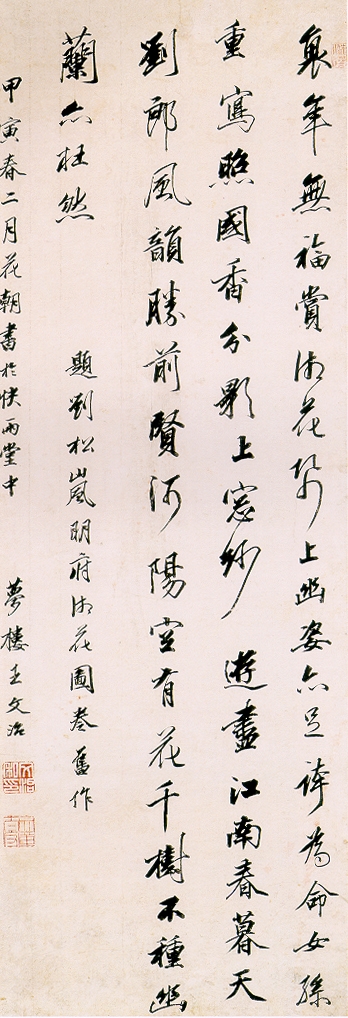 衰年無福賞湘花帋上幽姿亦足誇為命女孫
重寫照國香分影上窓紗 遊盡江南春暮天
劉郎風韻勝前賢河陽空有花千樹不種幽
蘭亦枉然 題劉松嵐明府湘花圖卷舊作
甲寅春二月花朝書於快雨堂中 夢樓王文治